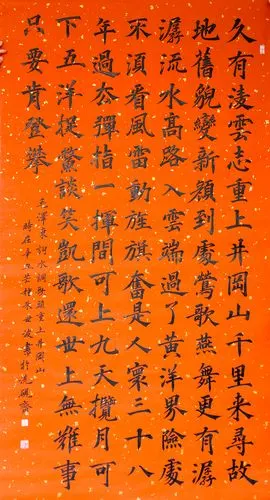 久有淩雲志重上井岡山千里来尋故
地舊貌變新顔到處鶯歌燕舞更有潺
潺流水高路入雲端過了黄洋界險處
不湏看風雷動旌旗奮是人寰三十八
年過去彈指一揮間可上九天攬月可
下五洋捉鱉談笑凱歌還世上無難事
只要肯登攀
毛澤東詞水調歌頭重上井岡山
時在辛丑芒種世波書於洗硯齋